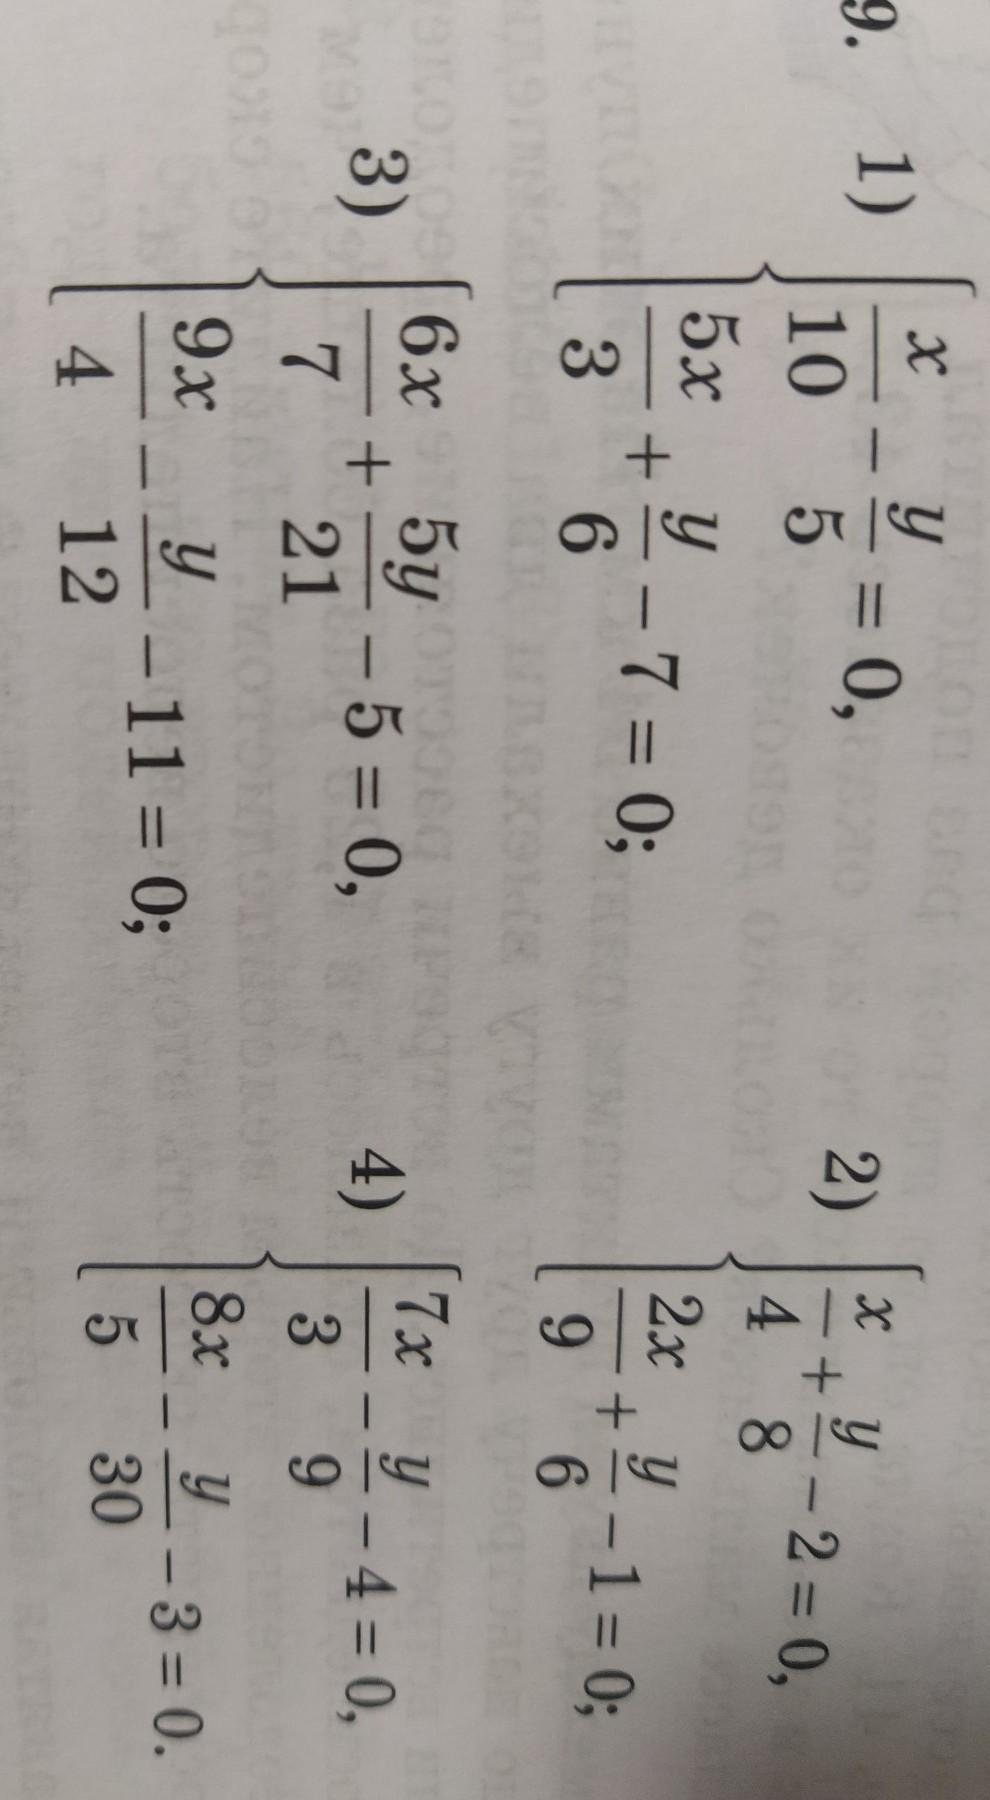 9. 1) { x/10 − y/5 = 0,
5x/3 + y/6 − 7 = 0;
2) { x/4 + y/8 − 2 = 0,
2x/9 + y/6 − 1 = 0;
3) { 6x/7 + 5y/21 − 5 = 0,
9x/4 − y/12 − 11 = 0;
4) { 7x/3 − y/9 − 4 = 0,
8x/5 − y/30 − 3 = 0.